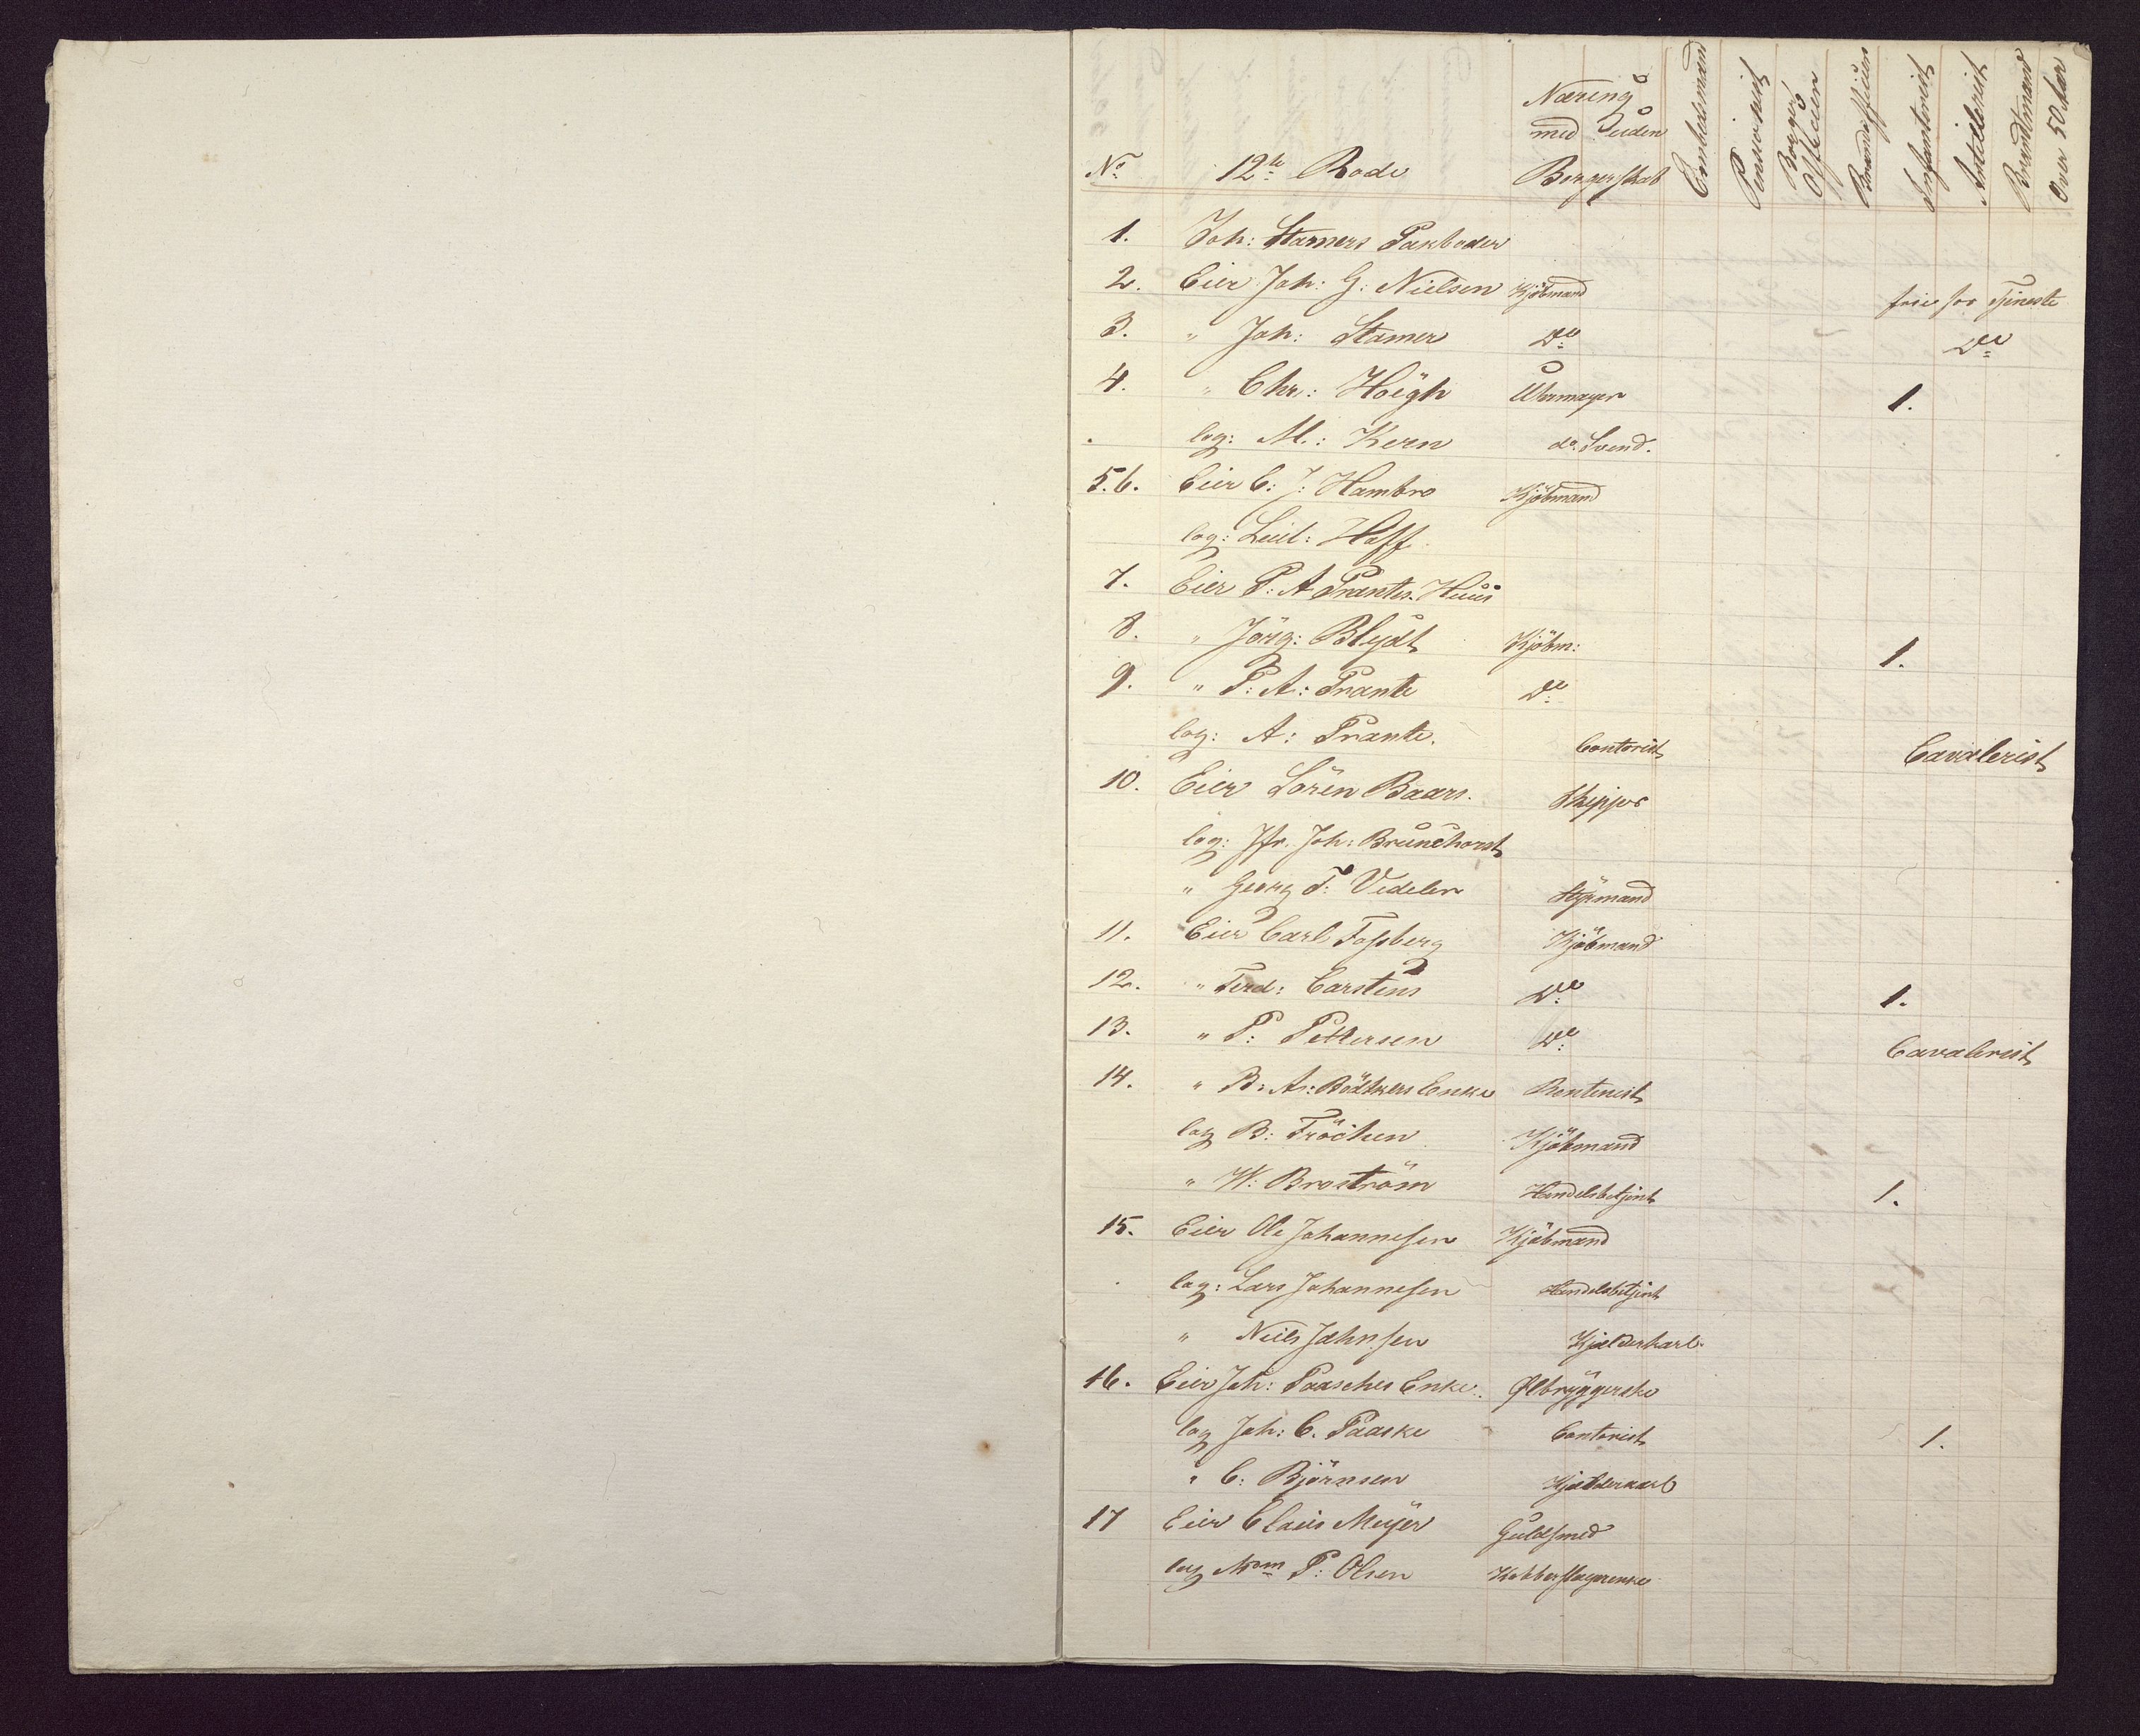 No 12te Rode Næring med Uden Borgerskab Embedsmand Pensionist Borger Officeer Brandofficeer Infanterist Artillerist Brandmand Over 50 Aar
1. Joh: Stamers Pakboder
2. Eier Joh: G: Nielsen Kjöbmand frie for Tjeneste
3. " Joh: Stamer Do Do
4. " Chr: Höegh Uhrmager 1.
log: M.: Kern do Svend.
5.6. Eier C: J: Hambro Kjöbmand
log: Leut: Hoff.
7. Eier P: A Prantes Huus
8. " Jörg: Blydt Kjöbm: 1.
9. " P: A: Prante Do
log: A: Prante. Contorist Cavalerist
10. Eier Sören Baars. Skipper
log: Jfr. Joh: Brunchorst
" Georg F: Vedeler Styrmand
11. Eier Carl Fossberg Kjöbmand
12. " Ferd: Carstens Do 1.
13. " P: Pettersen Do Cavalerist
14. " B: A: Bödtkers Enke Rentenist
log B: Fröchen Kjöbmand
" W: Broström Handelsbetjent 1.
15. Eier Ole Johannesen Kjöbmand
log: Lars Johannesen Handelsbetjent
" Niels Johnsen Kjelderkarl.
16. Eier Joh: Paasches Enke. Ølbryggerske
log Joh: C. Paaske Contorist 1.
" C: Björnsen Kjelderkarl
17 Eier Claus Meyer Guldsmed
log Mdm P: Olsen Kobberslagerenke